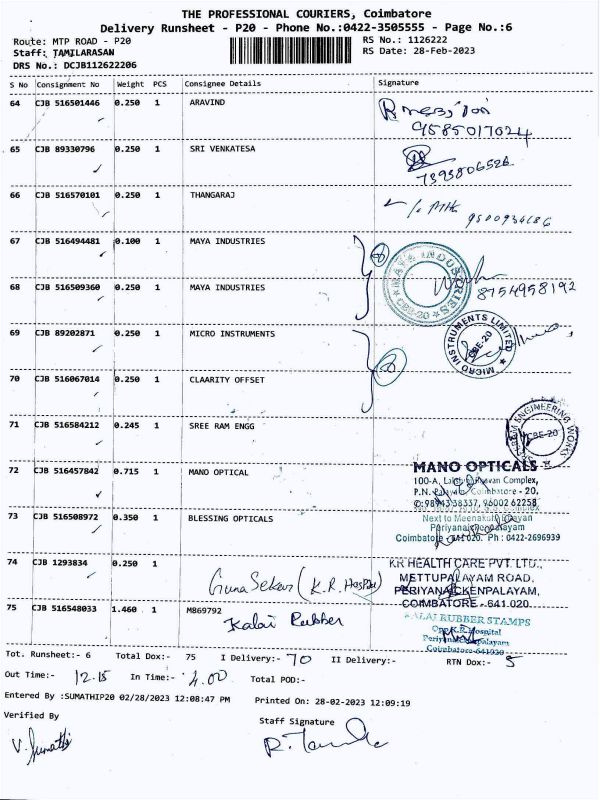 THE PROFESSIONAL COURIERS, Coimbatore
Delivery Runsheet - P20 - Phone No.:0422-3505555 - Page No.:6
Route: MTP ROAD - P20
RS No.: 1126222
Staff: TAMILARASAN
RS Date: 28-Feb-2023
DRS No.: DCJB112622206
S No Consignment No Weight PCS Consignee Details Signature
64 CJB 516501446 0.250 1 ARAVIND
9585017024
65 CJB 89330796 0.250 1 SRI VENKATESA
7393806526
66 CJB 516570101 0.250 1 THANGARAJ
67 CJB 516494481 0.100 1 MAYA INDUSTRIES
MAYA INDUSTRIES
CBE-20
68 CJB 516509360 0.250 1 MAYA INDUSTRIES
8754958192
69 CJB 89202871 0.250 1 MICRO INSTRUMENTS
MICRO INSTRUMENTS LIMITED
CBE-20
70 CJB 516067014 0.250 1 CLAARITY OFFSET
71 CJB 516584212 0.245 1 SREE RAM ENGG
ENGINEERING WORKS
CBE-20
72 CJB 516457842 0.715 1 MANO OPTICAL
MANO OPTICALS
Complex,
Coimbatore - 20.
73 CJB 516508972 0.350 1 BLESSING OPTICALS
Next to Meenakshi
Periyanaickenpalayam
Coimbatore - 641 020. Ph : 0422-2696939
74 CJB 1293834 0.250 1
Guna Sekar (K.R. Hospital
KR HEALTH CARE PVT. LTD.,
METTUPALAYAM ROAD,
PERIYANAICKENPALAYAM,
COIMBATORE - 641 020.
75 CJB 516548033 1.460 1 M869792
Kalai Rubber
KALAI RUBBER STAMPS
Opp. K.R. Hospital
Periyanaickenpalayam
Coimbatore-641020
Tot. Runsheet:- 6 Total Dox:- 75 I Delivery:- 70 II Delivery:- RTN Dox:- 5
Out Time:- 12.15 In Time:- 4.00 Total POD:-
Entered By :SUMATHIP20 02/28/2023 12:08:47 PM Printed On: 28-02-2023 12:09:19
Verified By
Staff Signature
V. Sumathi